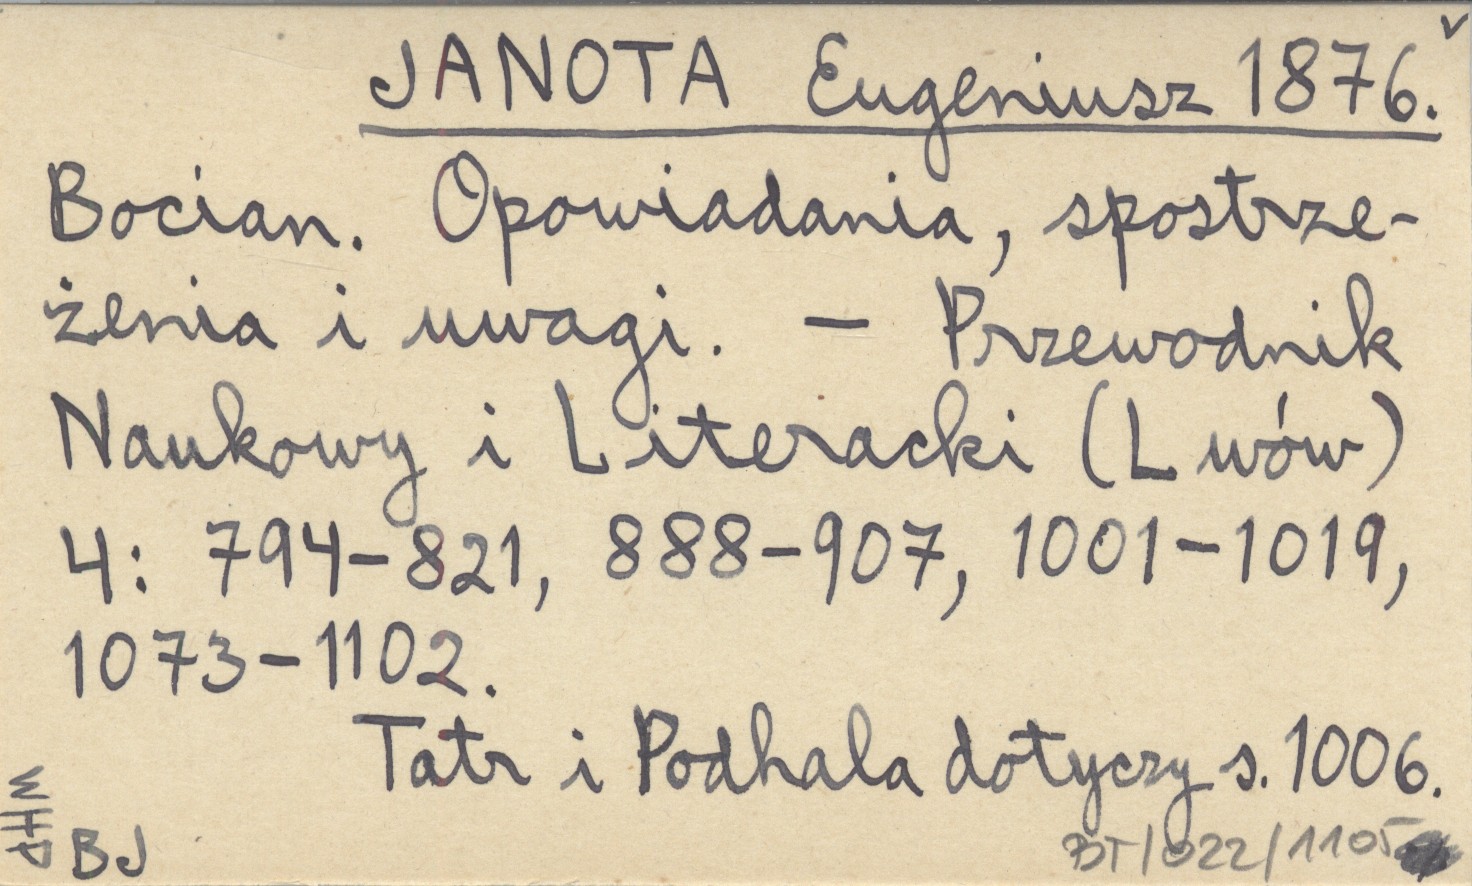 JANOTA Eugeniusz 1876.
Bocian. Opowiadania, spostrze-
żenia i uwagi. – Przewodnik
Naukowy i Literacki (Lwów)
4: 794–821, 888–907, 1001–1019,
1073–1102.
Tatr i Podhala dotyczy s. 1006.
BJ
BT/022/1105